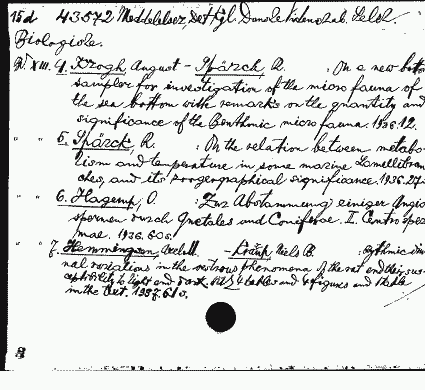 15d 43572 Meddelelser, Det Kgl. Danske Videnskab. Selsk.
Biologiske.
Bd. XIII. 4. Krogh, August - Spärck, R. : On a new bottom
sampler for investigation of the micro fauna of
the sea bottom with remarks on the quantity and
significance of the Benthonic micro fauna. 1936. 12.
" " 5. Spärck, R. : On the relation between metabo-
lism and temperature in some marine Lamellibran-
ches, and its zoogeographical significance. 1936. 27.
" " 6. Hagerup, O. : Zur Abstammung einiger Angio-
spermen durch Gnetales und Coniferae. II. Centrospermae
. 1936. 60 s.
" " 7. Hemmingsen, Axel M. - Krarup, Niels B. : Rythmic diur-
nal variations in the oestrous phenomena of the rat and their sus-
ceptibility to light and dark. With 4 tables and figures and 1 table
in the text. 1937. 61 s.